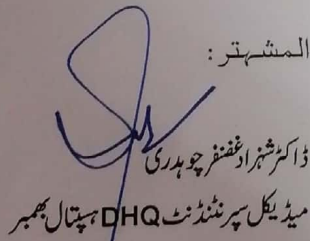 المشتہر:
ڈاکٹر شہزاد غضنفر چوہدری
میڈیکل سپرنٹنڈنٹ DHQ ہسپتال بھمبر